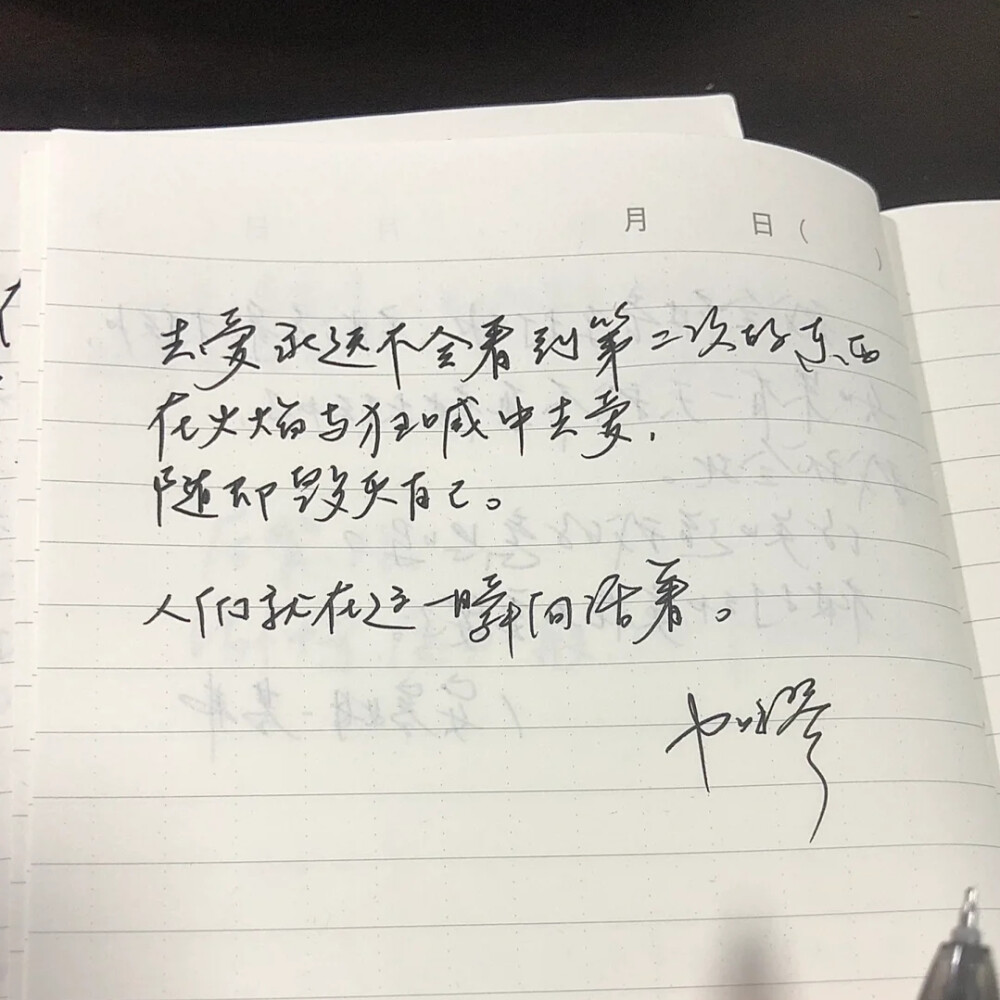 月 日( )
去爱永远不会看到第二次的东西
在火焰与狂喊中去爱,
随即毁灭自己。
人们就在这一瞬间活着。
加缪